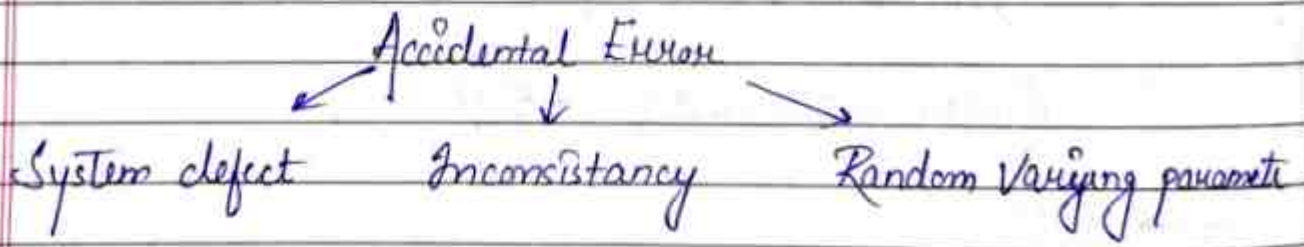 Accidental Error
System defect Inconsistancy Random Varying paramete